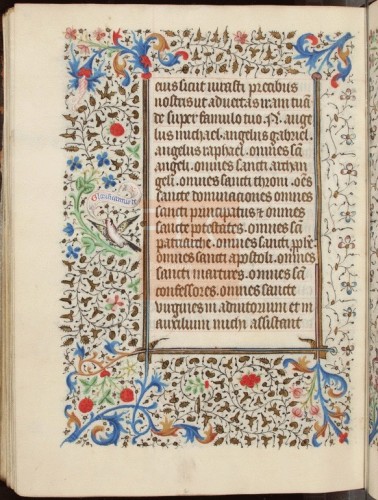 eius sicut iurasti precibus
nostris ut aduertas iram tuā
de super famulo tuo .N. ange
lus michael . angelus gabriel .
angelus raphael . omnes scī
angeli . omnes sancti archan
geli . omnes sancti throni . oēs
sancte dominaciones omnes
sancti principatus & omnes
sancte potestates . omnes scī
patriarche . omnes sancti
omnes sancti apostoli . omnes
sancti martires . omnes scī
confessores . omnes sancte
uirgines in adiutorium et in
auxilium michi assistant